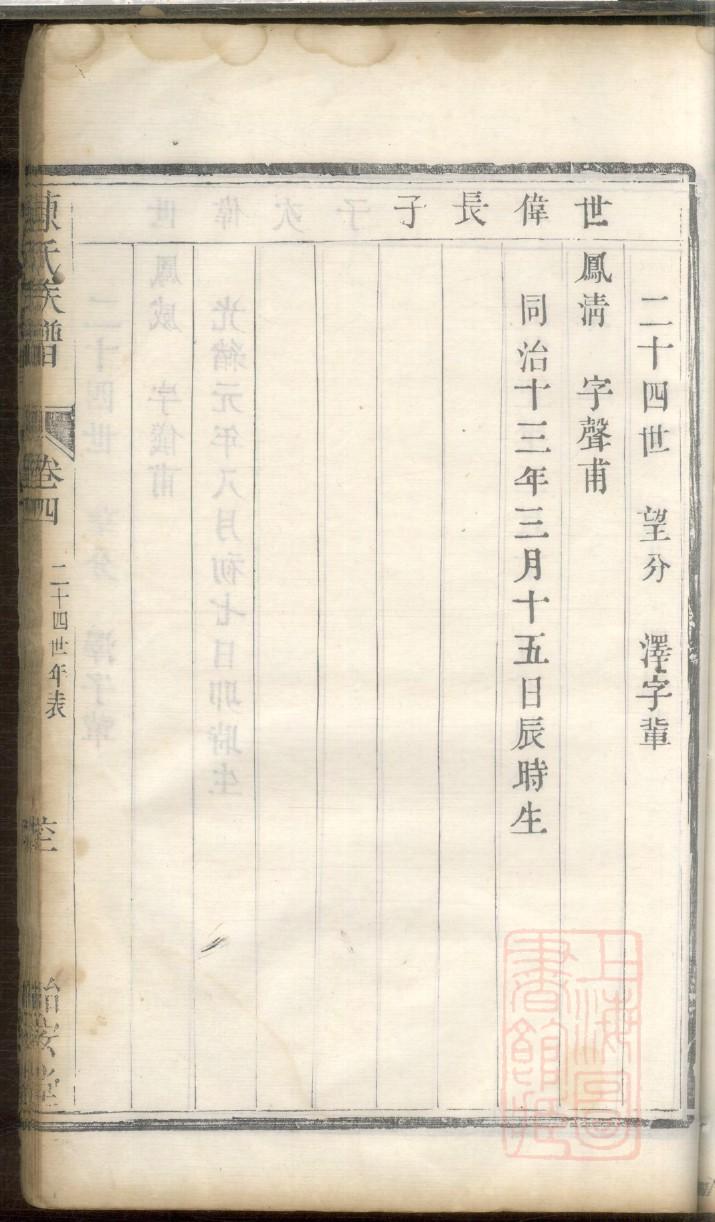 二十四世 望分 澤字輩
世偉長子
鳳淸 字聲甫
同治十三年三月十五日辰時生
陳氏族譜 卷四 二十四世年表
上海圖書館藏